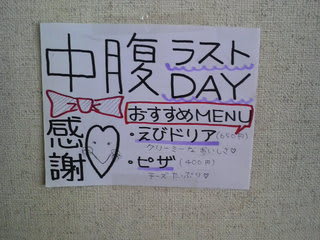 中腹 ラスト
DAY
感謝
おすすめMENU
・えびドリア(650円)
クリーミーなおいしさ♡
・ピザ(400円)
チーズたっぷり♡